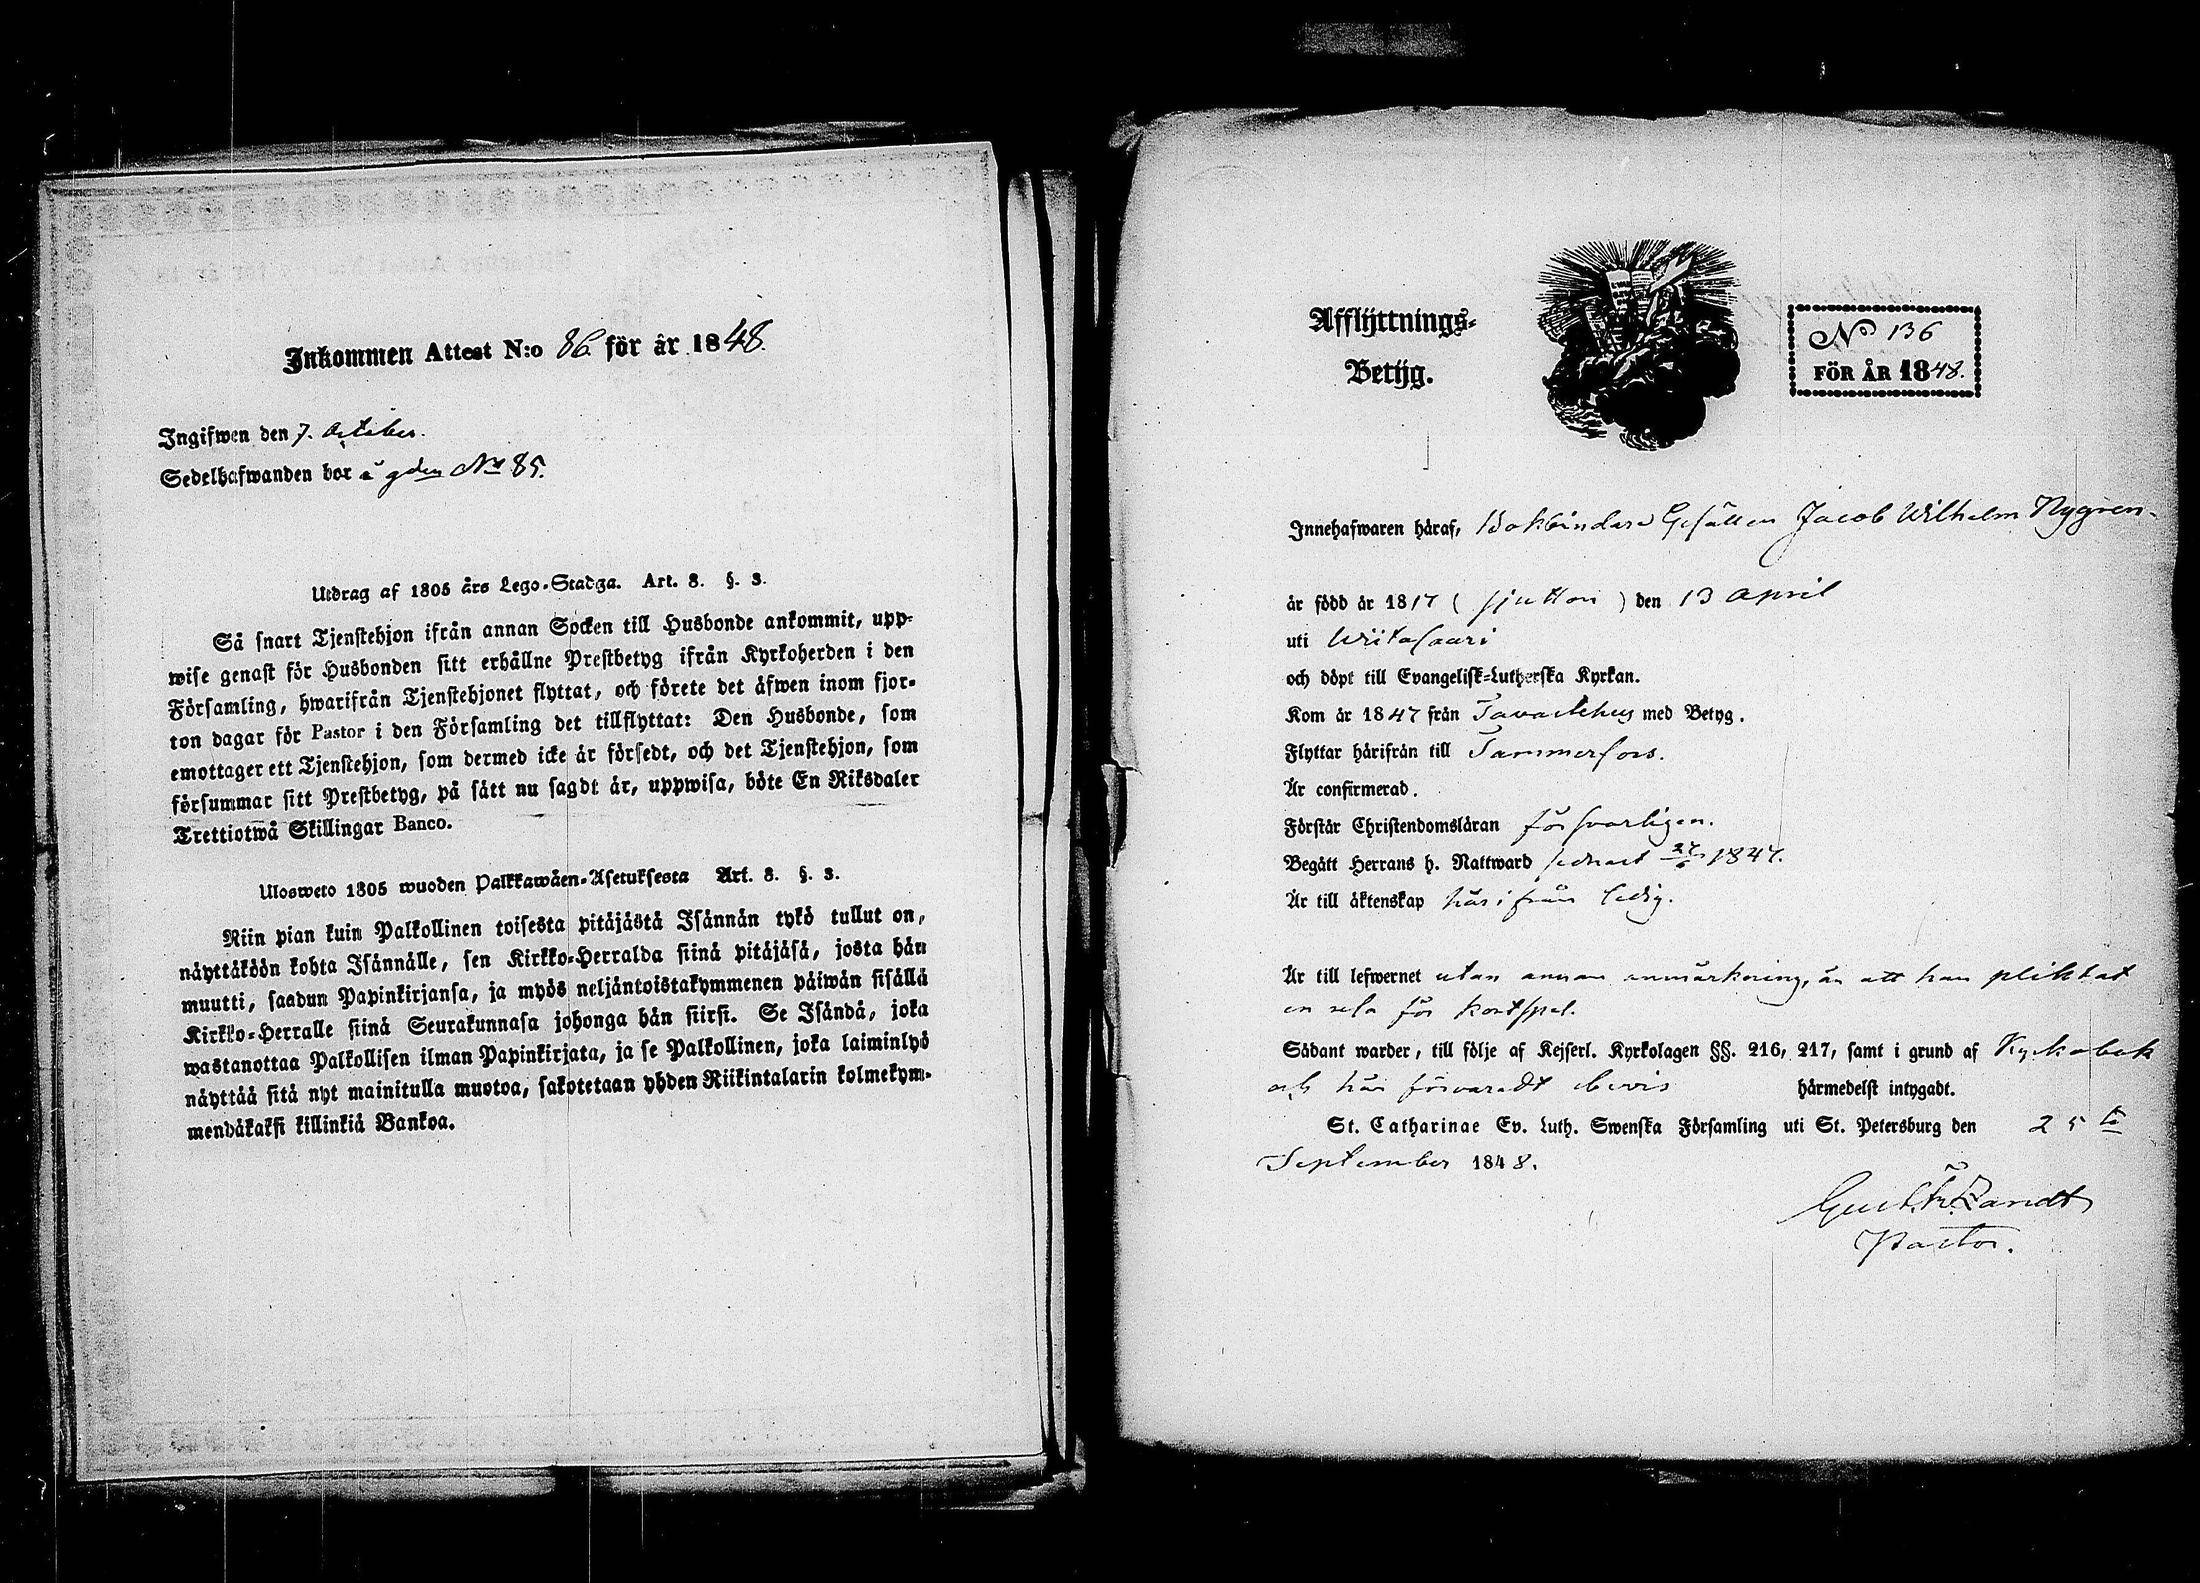 Inkommen Attest N:o 86. för år 1848.
Ingifwen den 7. October.
Sedelhafwanden bor å gden No 85.
Utdrag af 1805 års Lego-Stadga. Art. 8. §. 3.
Så snart Tjenstehjon ifrån annan Socken till Husbonde ankommit, upp-
wise genast för Husbonden sitt erhållne Prestbetyg ifrån Kyrkoherden i den
Församling, hwarifrån Tjenstehjonet flyttat, och förete det äfwen inom fjor-
ton dagar för Pastor i den Församling det tillflyttat: Den Husbonde, som
emottager ett Tjenstehjon, som dermed icke är försedt, och det Tjenstehjon, som
försummar sitt Prestbetyg, på sätt nu sagdt är, uppwisa, böte En Riksdaler
Trettiotwå Skillingar Banco.
Ulosweto 1805 wuoden Palkkawäen-Asetuksesta Art. 8. §. 3.
Niin pian kuin Palkollinen toisesta pitäjästä Isännän tykö tullut on,
näyttäköön kohta Isännälle, sen Kirkko-Herralda siinä pitäjäsä, josta hän
muutti, saadun Papinkirjansa, ja myös neljäntoistakymmenen päiwän sisällä
Kirkko-Herralle siinä Seurakunnasa johonga hän siirsi. Se Isändä, joka
wastanottaa Palkollisen ilman Papinkirjata, ja se Palkollinen, joka laiminlyö
näyttää sitä nyt mainitulla muotoa, sakotetaan yhden Riikintalarin kolmekym-
mendäkaksi killinkiä Bankoa.
Afflyttnings-
Betyg.
No 136
FÖR ÅR 1848.
Innehafwaren häraf, Bokbindare Gesällen Jacob Wilhelm Nygren
är född år 1817 (sjutton) den 13 April
uti Wiitasaari
och döpt till Evangelisk-Lutherska Kyrkan.
Kom år 1847 från Tavastehus med Betyg.
Flyttar härifrån till Tammerfors.
Är confirmerad.
Förstår Christendomsläran försvarligen.
Begått Herrans h. Nattward sednast 27/6 1847.
Är till äktenskap härifrån ledig.
Är till lefwernet utan annan anmärkning, än att han pliktat
en resa för kortspel.
Sådant warder, till följe af Kejserl. Kyrkolagen §§. 216, 217, samt i grund af Kyrkobok
och här förvaradt bevis härmedelst intygadt.
St. Catharinae Ev. Luth. Swenska Församling uti St. Petersburg den 25te
September 1848.
Gust. Fr. Zandt
Pastor.